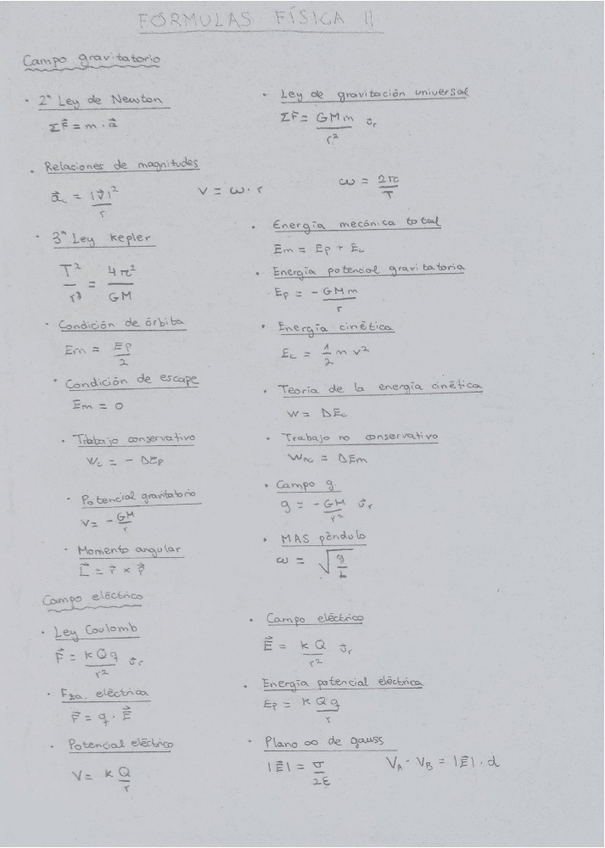 FÓRMULAS FÍSICA II
Campo gravitatorio
· 2ª Ley de Newton
ΣF⃗ = m · a⃗
· Ley de gravitación universal
ΣF⃗ = GMm/r² u⃗r
· Relaciones de magnitudes
a⃗c = |v⃗|²/r    v = ω · r    ω = 2π/T
· 3ª Ley kepler
T²/r³ = 4π²/GM
· Energía mecánica total
Em = Ep + Ec
· Energía potencial gravitatoria
Ep = - GMm/r
· Condición de órbita
Em = Ep/2
· Energía cinética
Ec = 1/2 m v²
· Condición de escape
Em = 0
· Teoría de la energía cinética
W = ΔEc
· Trabajo conservativo
Wc = - ΔEp
· Trabajo no conservativo
Wnc = ΔEm
· Potencial gravitatorio
V = - GM/r
· Campo g
g = - GM/r² u⃗r
· Momento angular
L⃗ = r⃗ × p⃗
· MAS péndulo
ω = √(g/L)
Campo eléctrico
· Ley Coulomb
F⃗ = k Q q/r² u⃗r
· Campo eléctrico
E⃗ = k Q/r² u⃗r
· Fza. eléctrica
F⃗ = q · E⃗
· Energía potencial eléctrica
Ep = k Q q/r
· Potencial eléctrico
V = k Q/r
· Plano ∞ de gauss
|E⃗| = σ/2ε    VA - VB = |E⃗| · d